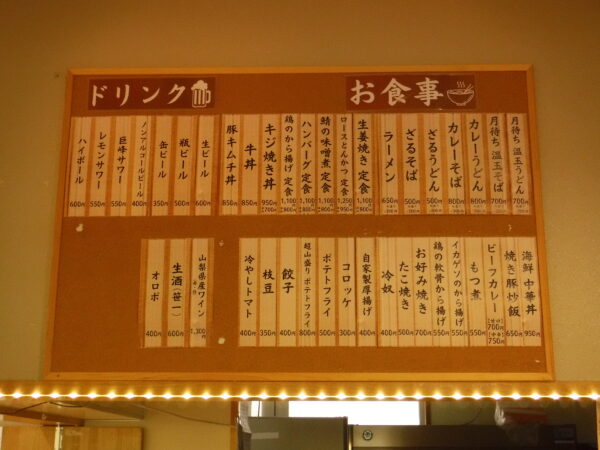 お食事
月待ち 温玉うどん 700円
月待ち 温玉そば 700円
カレーうどん 800円
カレーそば 800円
ざるうどん
ざるそば
ラーメン 650円
生姜焼き 定食 1,100円
ロースとんかつ 定食 1,250円
鯖の味噌煮 定食 1,100円
ハンバーグ 定食 1,100円
鶏のから揚げ 定食 1,100円
キジ焼き丼 950円
牛丼 850円
豚キムチ丼 850円
海鮮 中華丼 950円
焼き豚炒飯 650円
ビーフカレー 700円 750円
もつ煮 550円
イカゲソのから揚げ 550円
鶏の軟骨から揚げ 550円
お好み焼き 700円
たこ焼き 500円
冷奴 400円
自家製厚揚げ 400円
コロッケ 300円
ポテトフライ 500円
超山盛り ポテトフライ 800円
餃子 400円
枝豆 350円
冷やしトマト 400円
ドリンク
生ビール 600円
瓶ビール 500円
缶ビール 350円
ノンアルコールビール 400円
巨峰サワー 550円
レモンサワー 550円
ハイボール 600円
山梨県産ワイン 1,300円
生酒（笹一） 600円
オロポ 400円